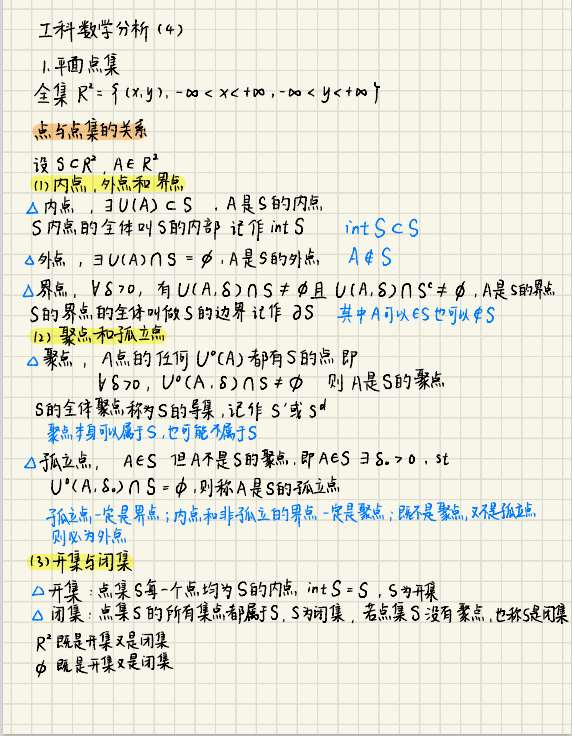 工科数学分析(4)
1.平面点集
全集 R²={(x,y), -∞<x<+∞, -∞<y<+∞}
点与点集的关系
设 S⊂R², A∈R²
(1)内点,外点和界点
△内点, ∃U(A)⊂S , A是S的内点
S内点的全体叫S的内部 记作 int S  int S⊂S
△外点, ∃U(A)∩S=∅, A是S的外点 A∉S
△界点, ∀δ>0, 有U(A,δ)∩S≠∅且 U(A,δ)∩Sᶜ≠∅, A是S的界点
S的界点的全体叫做S的边界 记作 ∂S 其中A可以∈S也可以∉S
(2)聚点和孤立点
△聚点, A点的任何 U⁰(A)都有S的点 即
∀δ>0, U⁰(A,δ)∩S≠∅ 则A是S的聚点
S的全体聚点称为S的导集,记作 S′或Sᵈ
聚点本身可以属于S,也可能不属于S
△孤立点, A∈S 但A不是S的聚点,即A∈S ∃δ₀>0, st
U⁰(A,δ₀)∩S=∅,则称A是S的孤立点
孤立点一定是界点;内点和非孤立的界点一定是聚点;既不是聚点,又不是孤立点
则必为外点
(3)开集与闭集
△开集:点集S每一个点均为S的内点 int S=S, S为开集
△闭集:点集S的所有集点都属于S, S为闭集, 若点集S没有聚点,也称S是闭集
R² 既是开集又是闭集
∅ 既是开集又是闭集